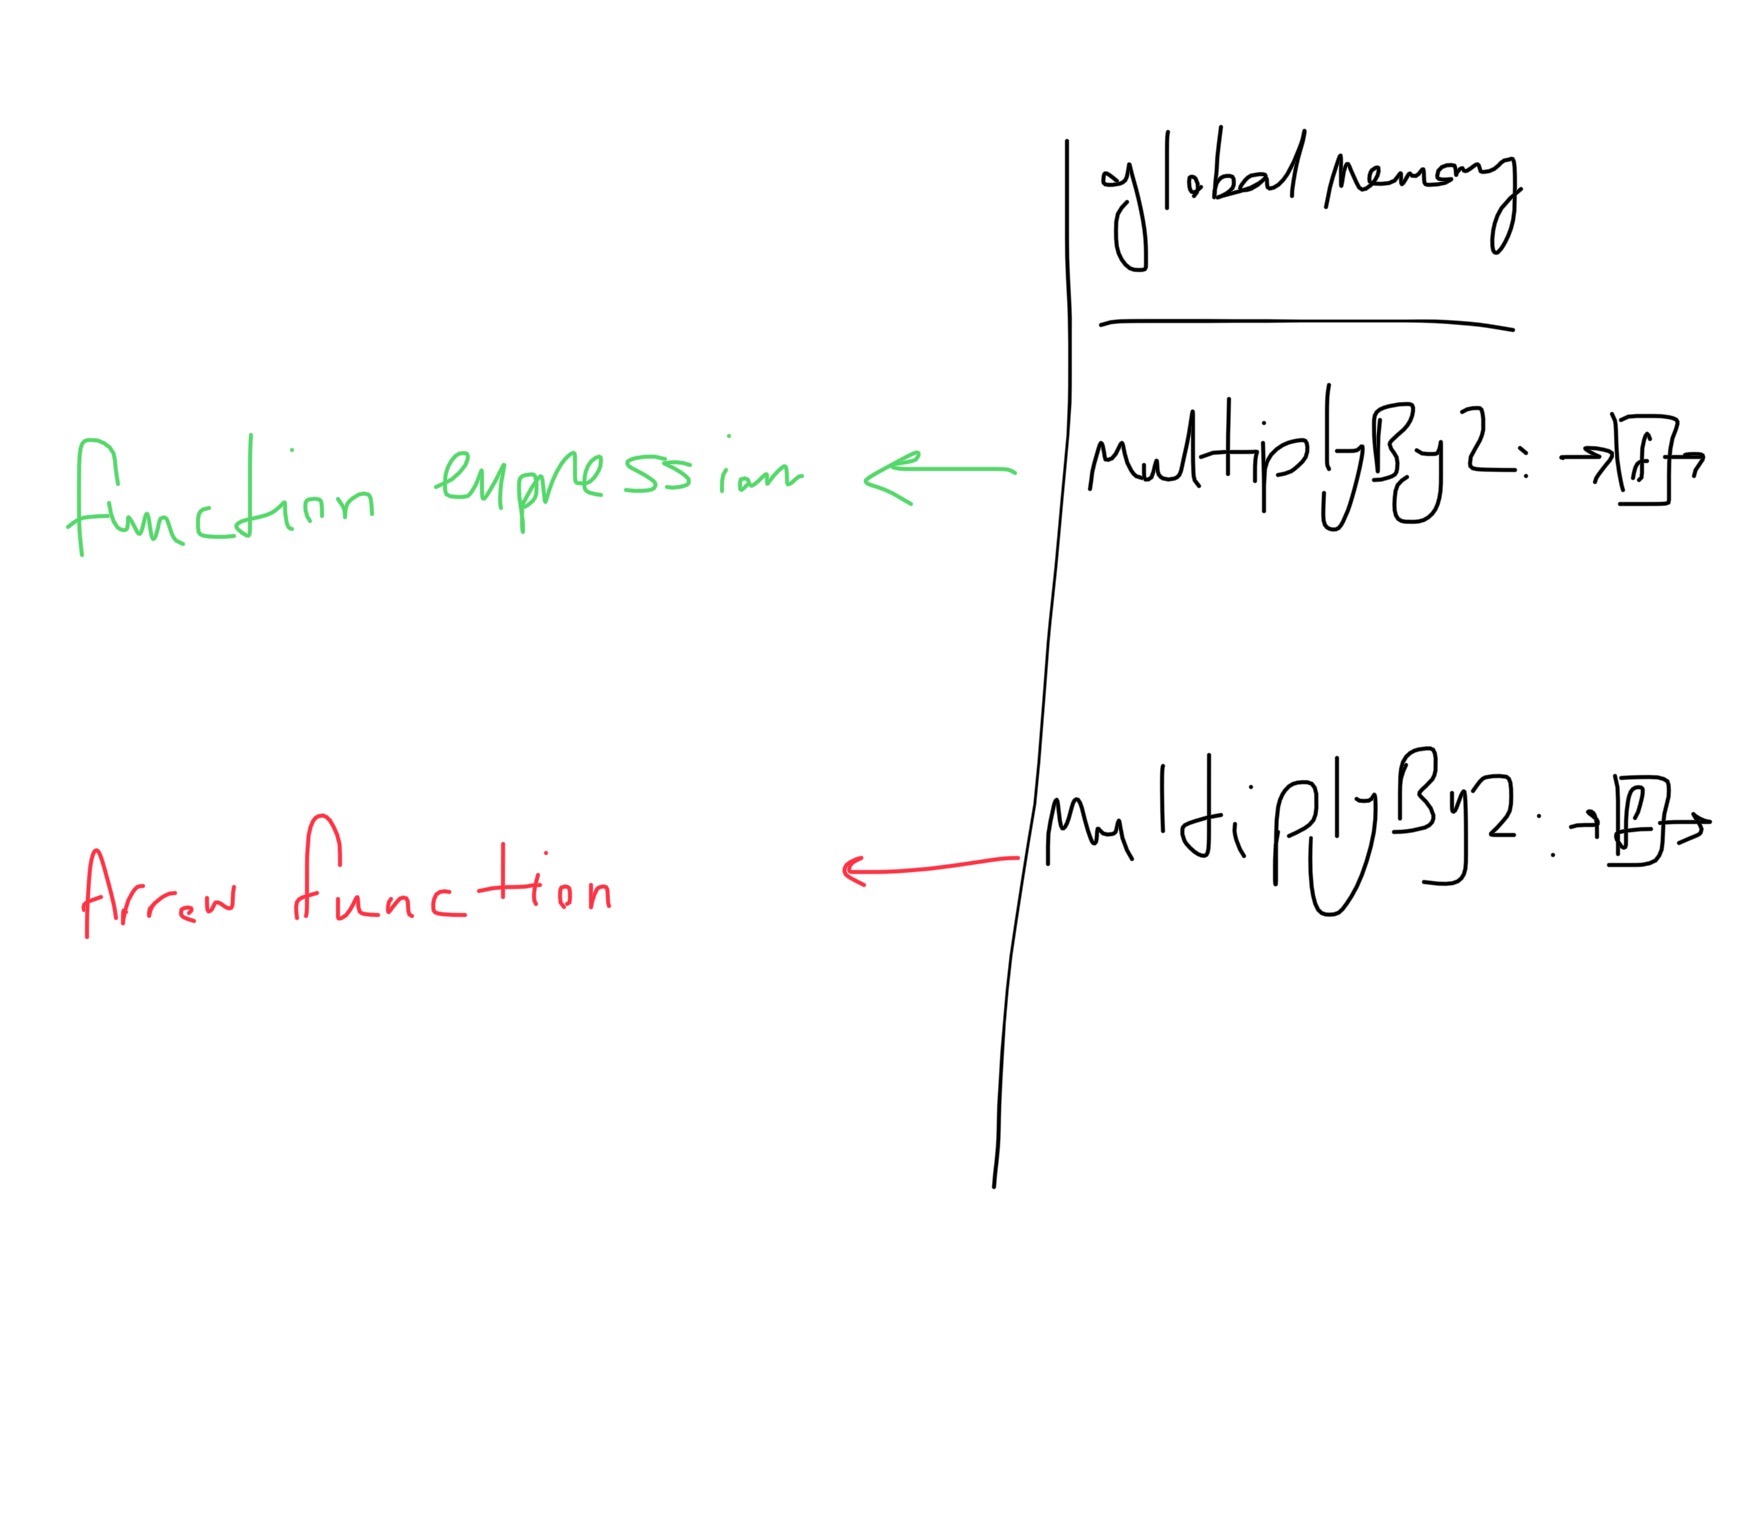 global memory
function expression ← multiplyBy2: →[f]→
Arrow function ← multiplyBy2: →[f]→